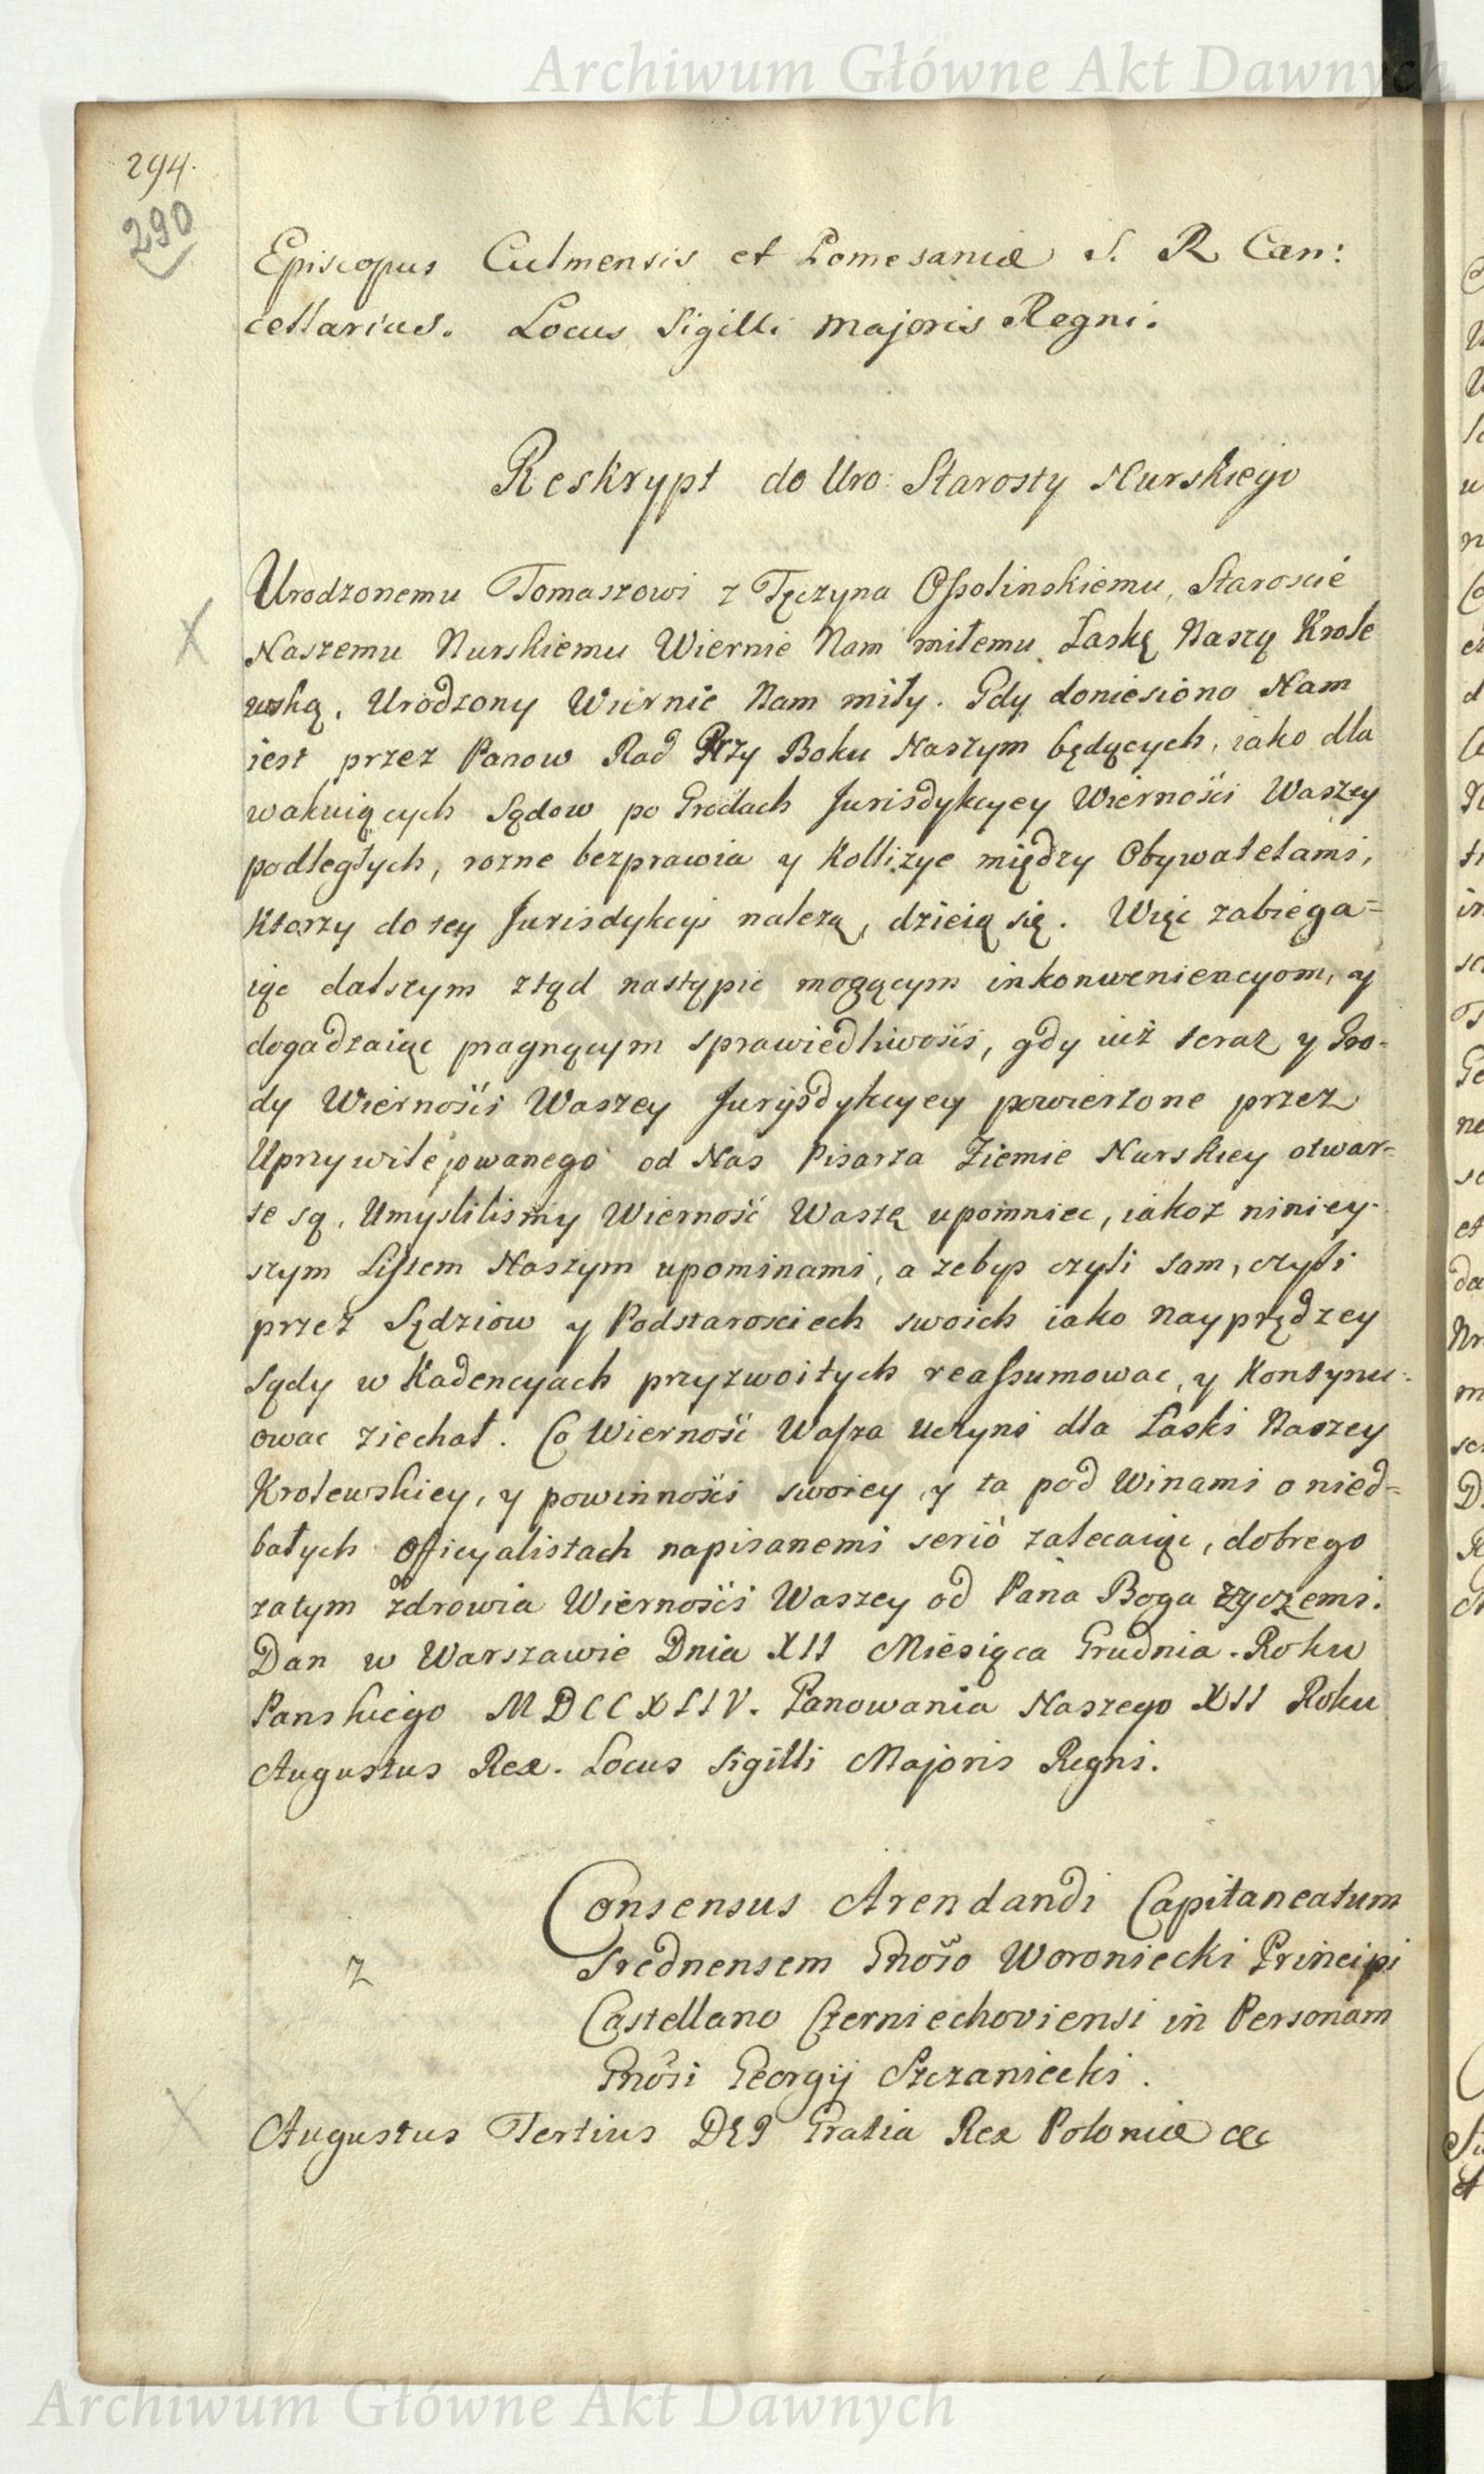 Archiwum Główne Akt Dawnych
294.
290
Episcopus Culmensis et Pomesaniæ S. R Can:
cellarius. Locus Sigilli majoris Regni.
Reskrypt do Uro: Starosty Nurskiego
Urodzonemu Tomaszowi z Tęczyna Ossolinskiemu, Staroscie
Naszemu Nurskiemu Wiernie Nam miłemu Łaskę Naszą Krole
wską. Urodzony Wiernie Nam miły. Gdy doniesiono Nam
iest przez Panow Rad Przy Boku Naszym będących, iako dla
wakuiących Sądow po Grodach Jurisdykcyey Wierności Waszey
podległych, rozne bezprawia y kollizye między Obywatelami,
Ktorzy do tey Jurisdykcyi nalezą, dzieią się. Więc zabiega=
iąc dalszym ztąd nastąpic mogącym inkonweniencyom, y
dogadzaiąc pragnącym sprawiedliwości, gdy iuż teraz y Gro-
dy Wierności Waszey Juryżdykcyey powierzone przez
Uprzywilejowanego od Nas Pisarza Ziemie Nurskiey otwar=
te są. Umyslilismy Wierność Waszę upomniec, iakoz niniey-
szym Listem Naszym upominami, a zebys czyli sam, czyli
przez Sędziow y Podstarosciech swoich iako nayprędzey
Sądy w Kadencyach przyzwoitych reassumowac, y Kontynu-
owac ziechał. Co Wierność Wasza uczyni dla Łaski Naszey
Krolewskiey, y powinności swoiey, y ta pod Winami o nied=
bałych officyalistach napisanemi serio zalecaiąc, dobrego
zatym zdrowia Wierności Waszey od Pana Boga życzemi.
Dan w Warszawie Dnia XII Miesiąca Grudnia. Roku
Panskiego MDCCXLIV. Panowania Naszego XII Roku
Augustus Rex. Locus Sigilli Majoris Regni.
Consensus Arendandi Capitaneatum
Srednensem Gnoso Woroniecki Principi
z
Castellano Czerniechoviensi in Personam
Gnosi Georgij Sczaniecki.
Augustus Tertius DEI Gratia Rex Poloniæ &c
Archiwum Główne Akt Dawnych